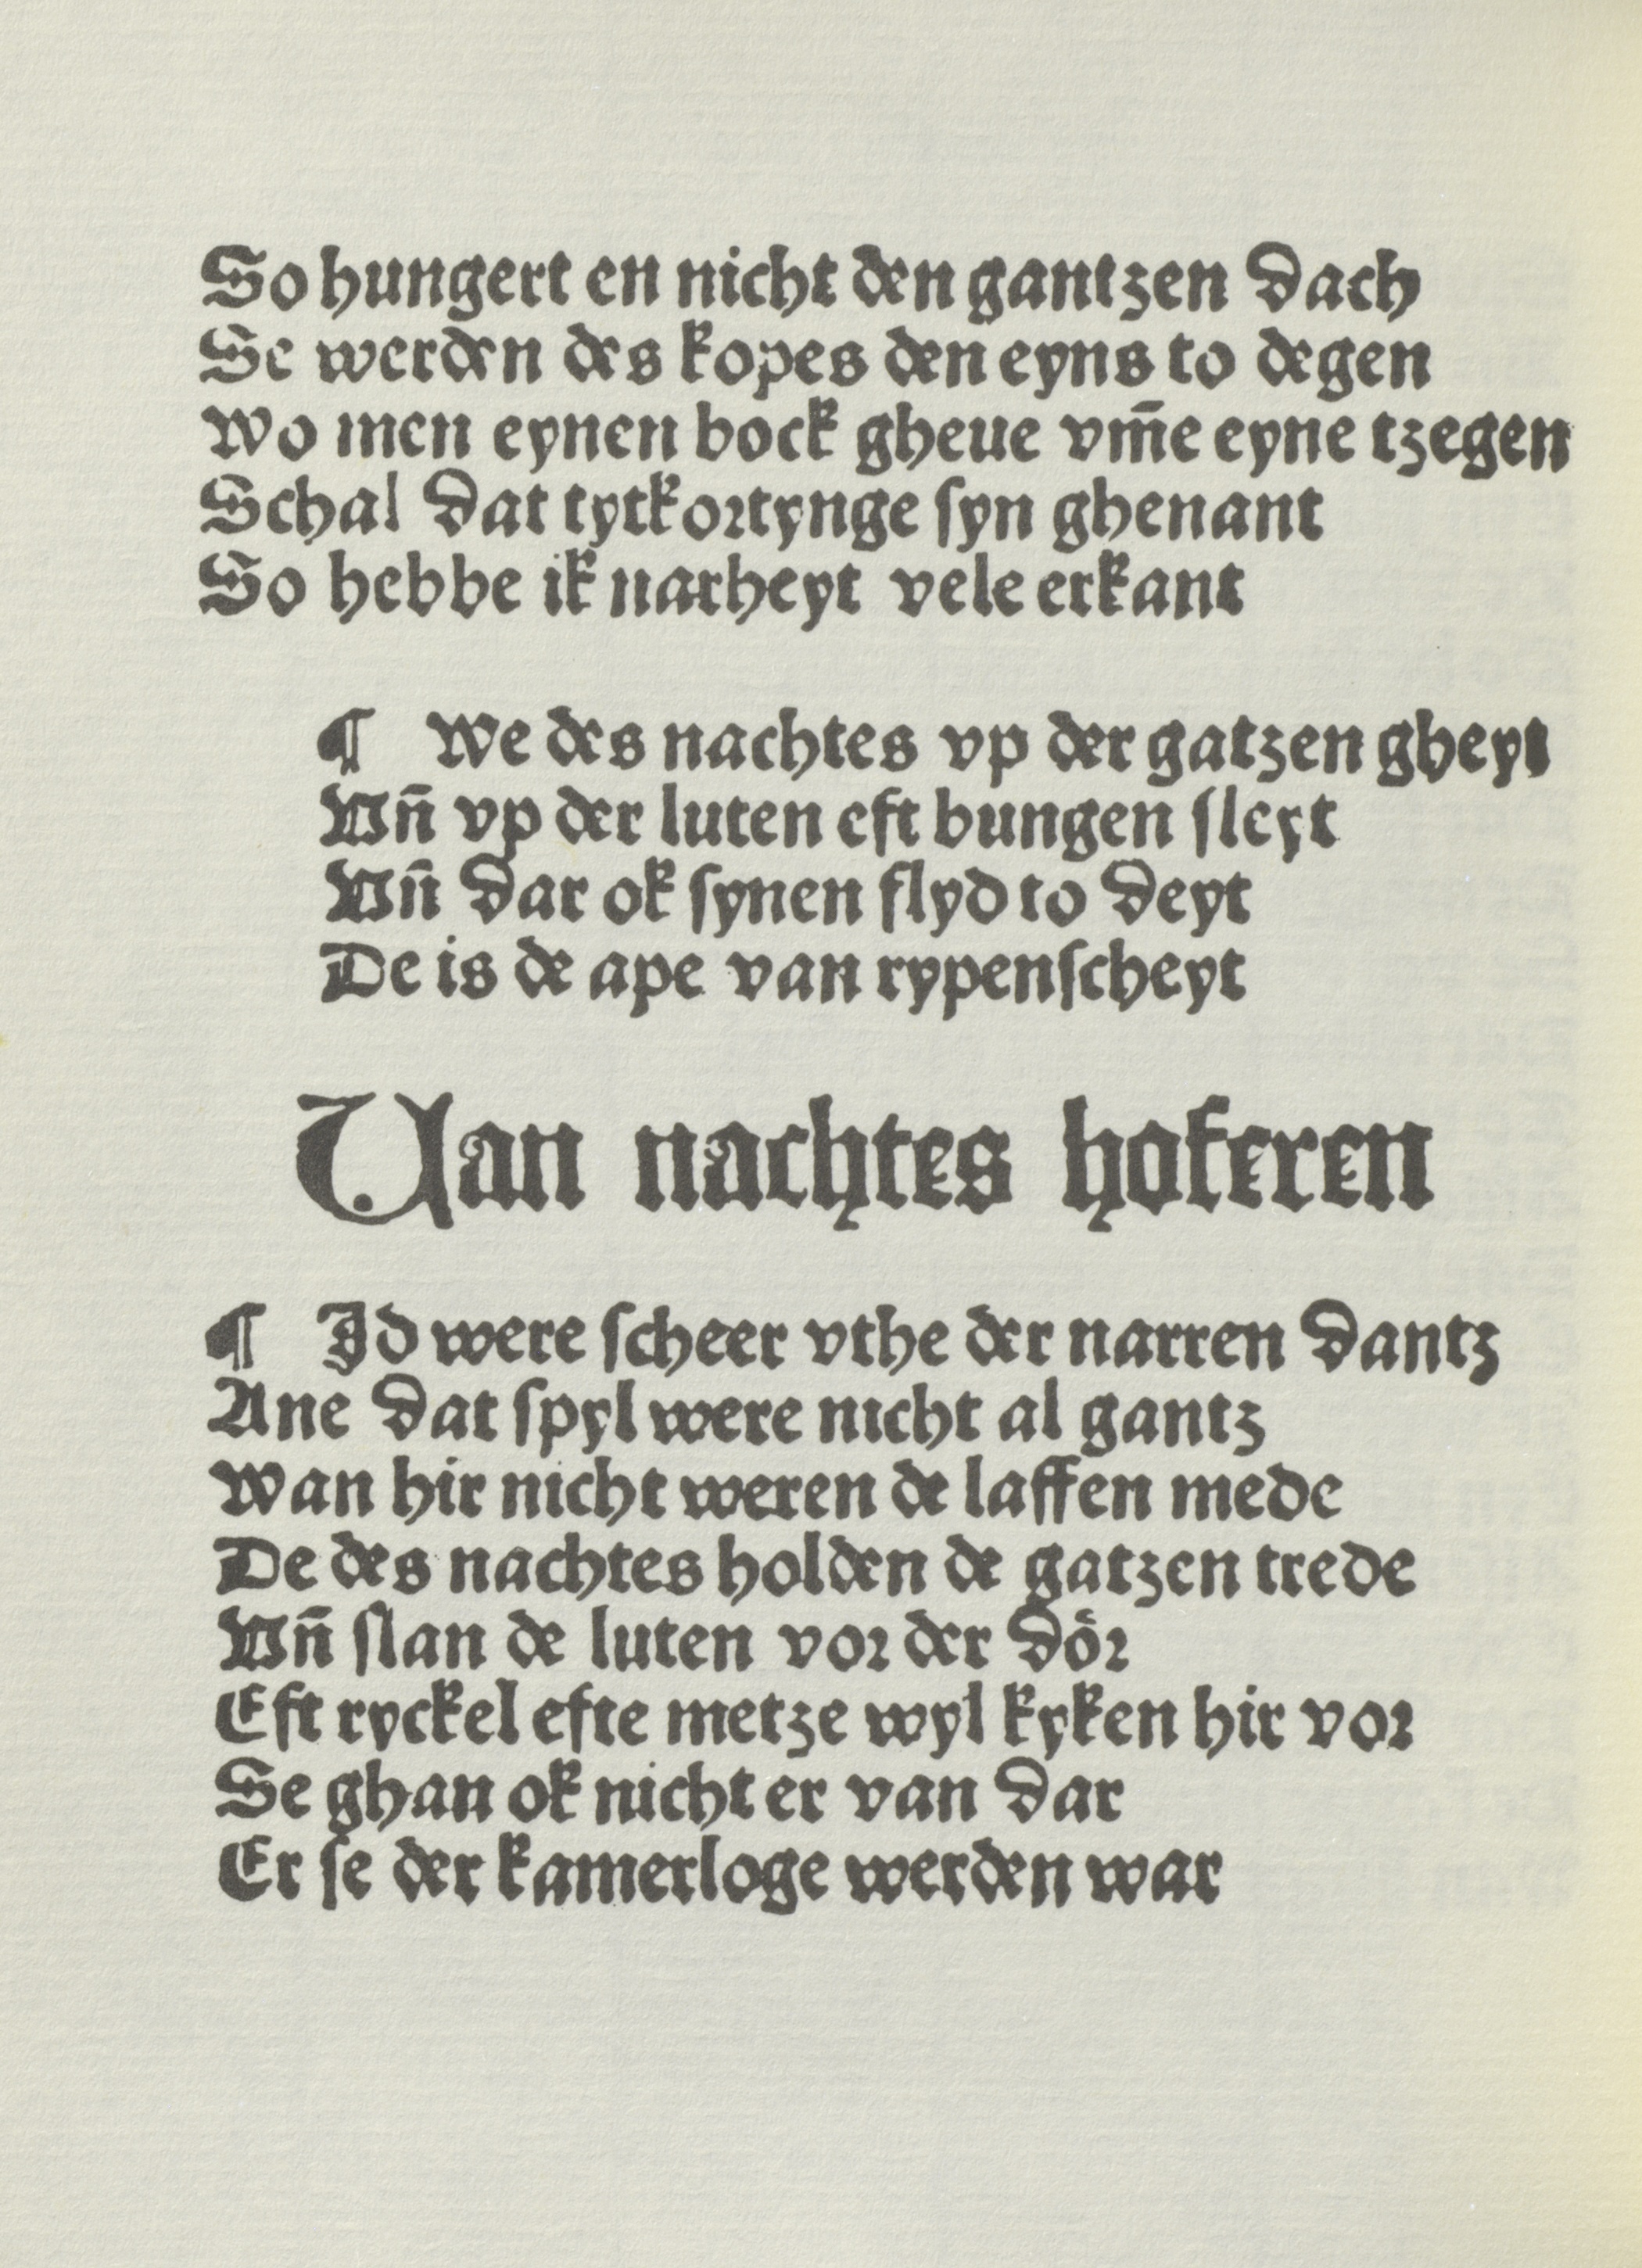 So hungert en nicht den gantzen dach
Se werden des kopes den eyns to degen
Wo men eynen bock gheue vm̄e eyne tzegen
Schal dat tytkortynge ſyn ghenant
So hebbe ik narheyt vele erkant
¶ We des nachtes vp der gatzen gheyt
Vn̄ vp der luten eft bungen ſleyt
Vn̄ dar ok ſynen flyd to deyt
De is de ape van rypenſcheyt
Van nachtes hoferen
¶ Id were ſcheer vthe der narren dantz
Ane dat ſpyl were nicht al gantz
Wan hir nicht weren de laffen mede
De des nachtes holden de gatzen trede
Vn̄ ſlan de luten vor der doͤr
Eft ryckel efte metze wyl kyken hir vor
Se ghan ok nicht er van dar
Er ſe der kamerloge werden war